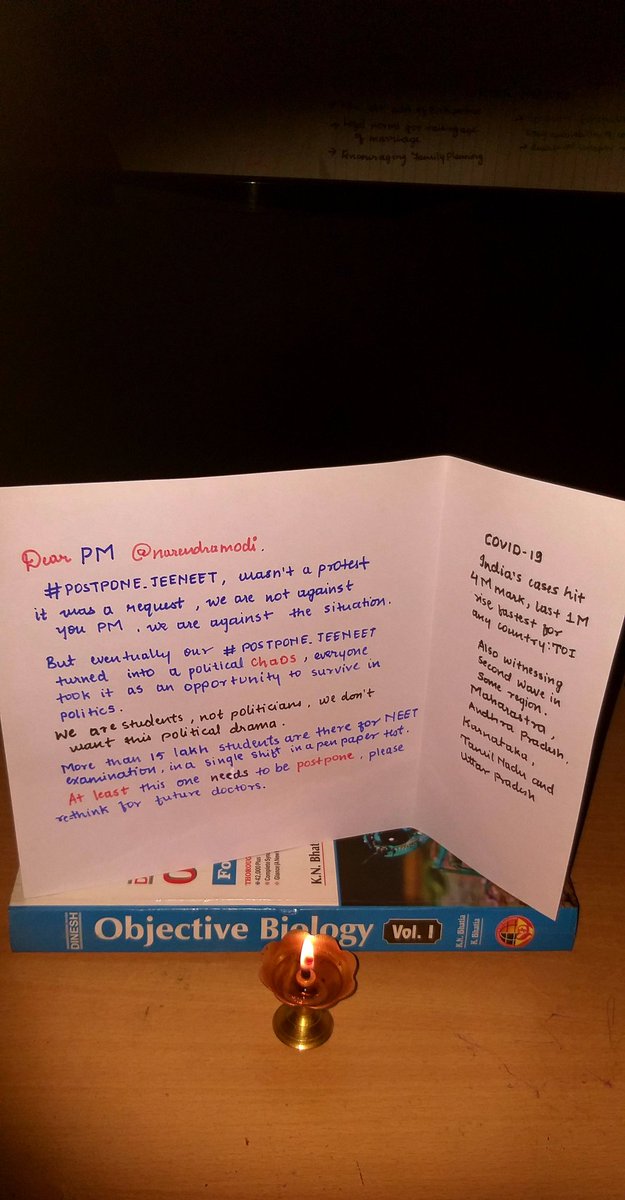 → Legal norms for raising age
of marriage
→ Encouraging Family Planning
Dear PM @narendramodi.
#POSTPONE_JEENEET, wasn't a protest
it was a request, we are not against
you PM, we are against the situation.
But eventually our #POSTPONE_JEENEET
turned into a political ChaOS, everyone
took it as an opportunity to survive in
politics.
We are students, not politicians, we don't
want this political drama.
More than 15 lakh students are there for NEET
examination, in a single shift in a pen paper test.
At least this one needs to be postpone, please
rethink for future doctors.
COVID-19
India's cases hit
4M mark, last 1M
rise fastest for
any country:TOI
Also witnessing
second wave in
some region.
Maharastra,
Andhra Pradesh.
Karnataka,
Tamil Nadu and
Uttar Pradesh
Fo
THOROUG
K.N. Bhat
DINESH
Objective Biology
Vol. I
K.N. Bhatia
K. Bhatia